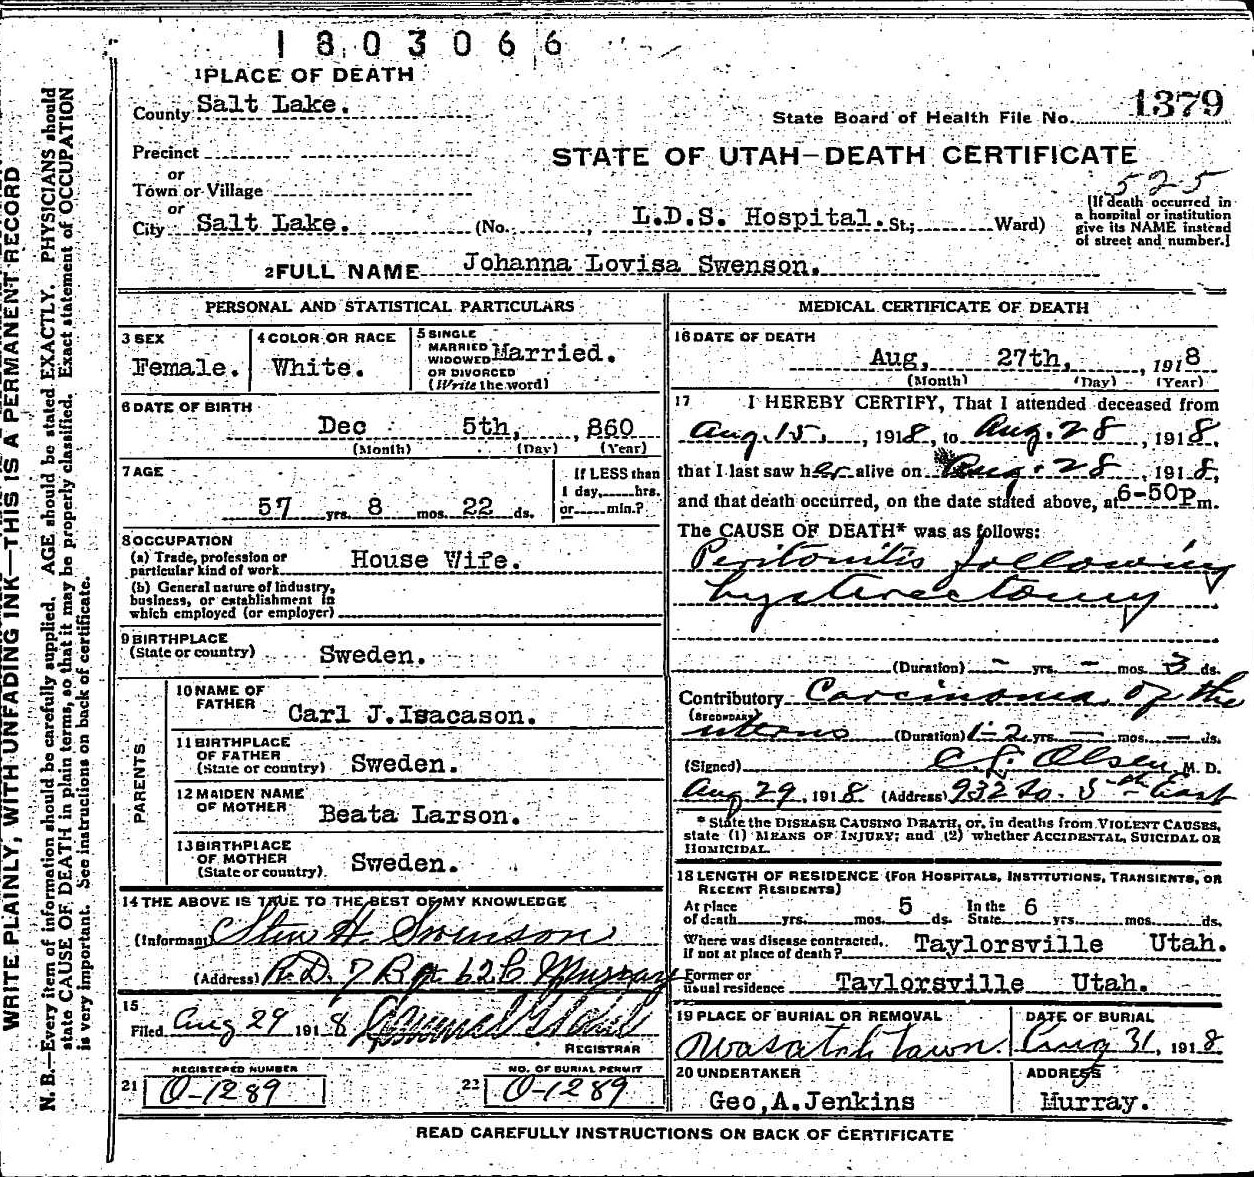 1803066
1 PLACE OF DEATH
County Salt Lake.
State Board of Health File No. 1379
Precinct
or
Town or Village
or
City Salt Lake.
STATE OF UTAH—DEATH CERTIFICATE
525
(No. , L.D.S. Hospital. St.; Ward)
[If death occurred in
a hospital or institution
give its NAME instead
of street and number.]
2 FULL NAME Johanna Lovisa Swenson.
PERSONAL AND STATISTICAL PARTICULARS
3 SEX
Female.
4 COLOR OR RACE
White.
5 SINGLE
MARRIED
WIDOWED
OR DIVORCED
(Write the word)
Married.
6 DATE OF BIRTH
Dec 5th, , 860
(Month) (Day) (Year)
7 AGE
57 yrs. 8 mos. 22 ds.
If LESS than
1 day, hrs.
or min.?
8 OCCUPATION
(a) Trade, profession or
particular kind of work House Wife.
(b) General nature of industry,
business, or establishment in
which employed (or employer)
9 BIRTHPLACE
(State or country) Sweden.
PARENTS
10 NAME OF
FATHER Carl J.Isacason.
11 BIRTHPLACE
OF FATHER
(State or country) Sweden.
12 MAIDEN NAME
OF MOTHER Beata Larson.
13 BIRTHPLACE
OF MOTHER
(State or country). Sweden.
14 THE ABOVE IS TRUE TO THE BEST OF MY KNOWLEDGE
(Informant H. Swenson
(Address) R.D. 7 Box 62 C Murray
15
Filed Aug 29 191 8
REGISTRAR
REGISTERED NUMBER
21 O-1289
NO. OF BURIAL PERMIT
22 O-1289
MEDICAL CERTIFICATE OF DEATH
16 DATE OF DEATH
Aug, 27th, , 1918
(Month) (Day) (Year)
17 I HEREBY CERTIFY, That I attended deceased from
Aug. 15, , 1918, to Aug. 28 , 1918,
that I last saw her alive on Aug. 28 , 1918,
and that death occurred, on the date stated above, at 6-50p m.
The CAUSE OF DEATH* was as follows:
Peritonitis following
hysterectomy
(Duration) — yrs. — mos. 3 ds.
Contributory Carcinoma of the
(SECONDARY)
uterus (Duration) 1-2 yrs. — mos. — ds.
(Signed) Olsen, M. D.
Aug 29, 1918 (Address) 932 So. 5th East
* State the DISEASE CAUSING DEATH, or, in deaths from VIOLENT CAUSES,
state (1) MEANS OF INJURY; and (2) whether ACCIDENTAL, SUICIDAL OR
HOMICIDAL.
18 LENGTH OF RESIDENCE (FOR HOSPITALS, INSTITUTIONS, TRANSIENTS, OR
RECENT RESIDENTS)
At place
of death yrs. mos. 5 ds.
In the
State 6 yrs. mos. ds.
Where was disease contracted,
If not at place of death? Taylorsville Utah.
Former or
usual residence Taylorsville Utah.
19 PLACE OF BURIAL OR REMOVAL
Wasatch Lawn.
DATE OF BURIAL
Aug 31, 1918
20 UNDERTAKER
Geo,A.Jenkins
ADDRESS
Murray.
READ CAREFULLY INSTRUCTIONS ON BACK OF CERTIFICATE
WRITE PLAINLY, WITH UNFADING INK—THIS IS A PERMANENT RECORD
N. B.—Every item of information should be carefully supplied. AGE should be stated EXACTLY. PHYSICIANS should
state CAUSE OF DEATH in plain terms, so that it may be properly classified. Exact statement of OCCUPATION
is very important. See instructions on back of certificate.